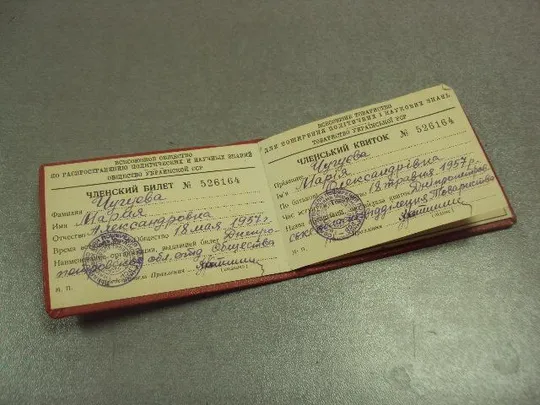 ВСЕСОЮЗНОЕ ОБЩЕСТВО
ПО РАСПРОСТРАНЕНИЮ ПОЛИТИЧЕСКИХ И НАУЧНЫХ ЗНАНИЙ
ОБЩЕСТВО УКРАИНСКОЙ ССР
ЧЛЕНСКИЙ БИЛЕТ № 526164
Фамилия Чугуова
Имя Мария
Отчество Александровна
Время вступления в общество 18 мая 1957г.
Наименование организации, выдавшей билет Днепро-
петровское обл. отд. Общества
Председатель Правления
(подпись)
М. П.
ВСЕСОЮЗНЕ ТОВАРИСТВО
ДЛЯ ПОШИРЕННЯ ПОЛІТИЧНИХ І НАУКОВИХ ЗНАНЬ
ТОВАРИСТВО УКРАЇНСЬКОЇ РСР
ЧЛЕНСЬКИЙ КВИТОК № 526164
Прізвище Чугуова
Ім'я Марія
По батькові Олександрівна
Час 18 травня 1957р.
Назва Дніпропетров-
ське Товариства
М. П.